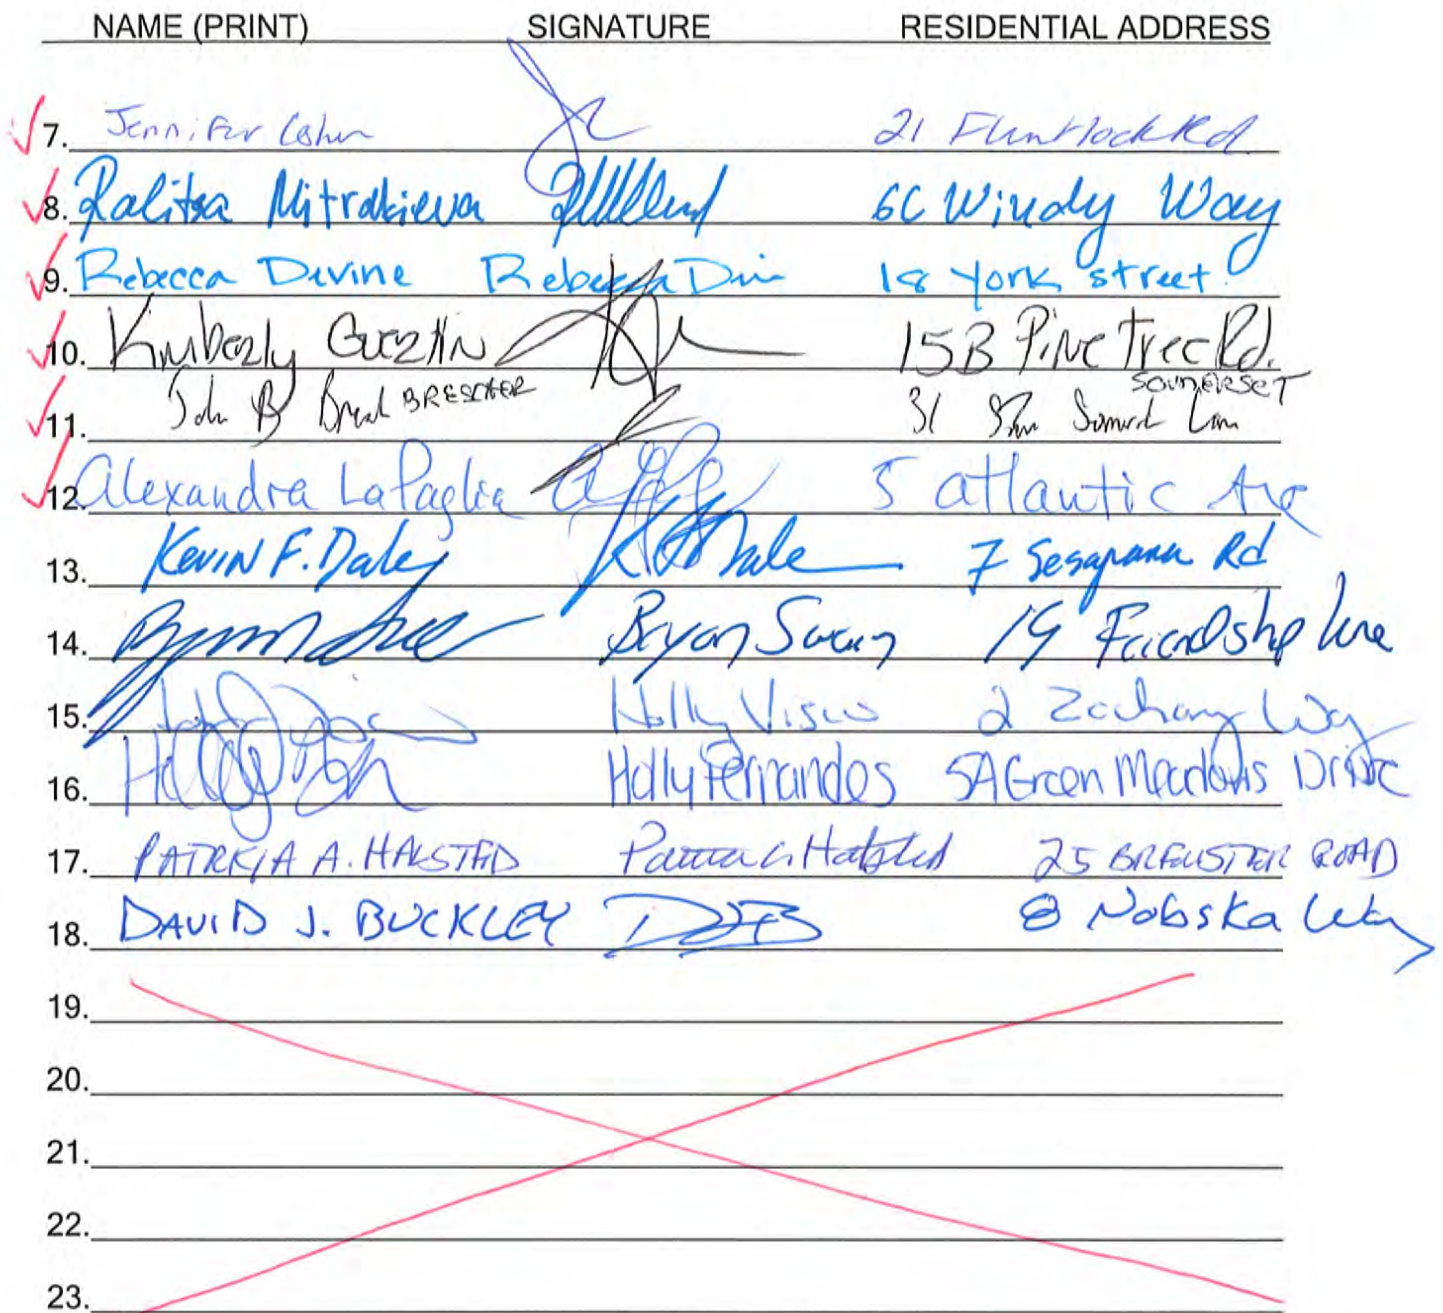 NAME (PRINT) SIGNATURE RESIDENTIAL ADDRESS
7. Jennifer 21 Flintlock Rd
8. Ralitsa Mitrakieva 6C Windy Way
9. Rebecca Devine Rebecca 18 York street
10. Kimberly 15B Pine Tree Rd.
John B BRESCHER SOMERSET
11. 31 Lane
12. Alexandra LaPaglia 5 atlantic Ave
13. Kevin F. Daley 7 Rd
14. Bryan Swain 19 Friendship Lane
15. Holly Visco 2 Zachary Way
16. Holly Fernandes 5A Green Meadows Drive
17. PATRICIA A. HALSTED Patricia A Halsted 25 BREWSTER ROAD
18. DAVID J. BUCKLEY 8 Nobska Way
19.
20.
21.
22.
23.